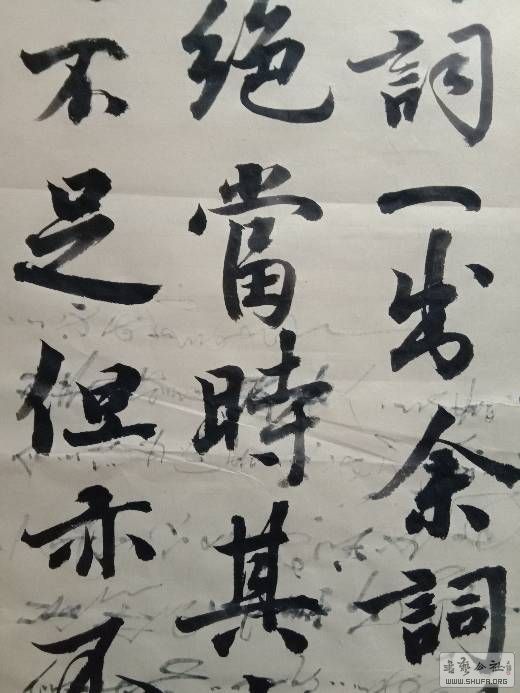 詞一出余詞
絕當時其
不足但亦
書藝公社
WWW.SHUFA.ORG